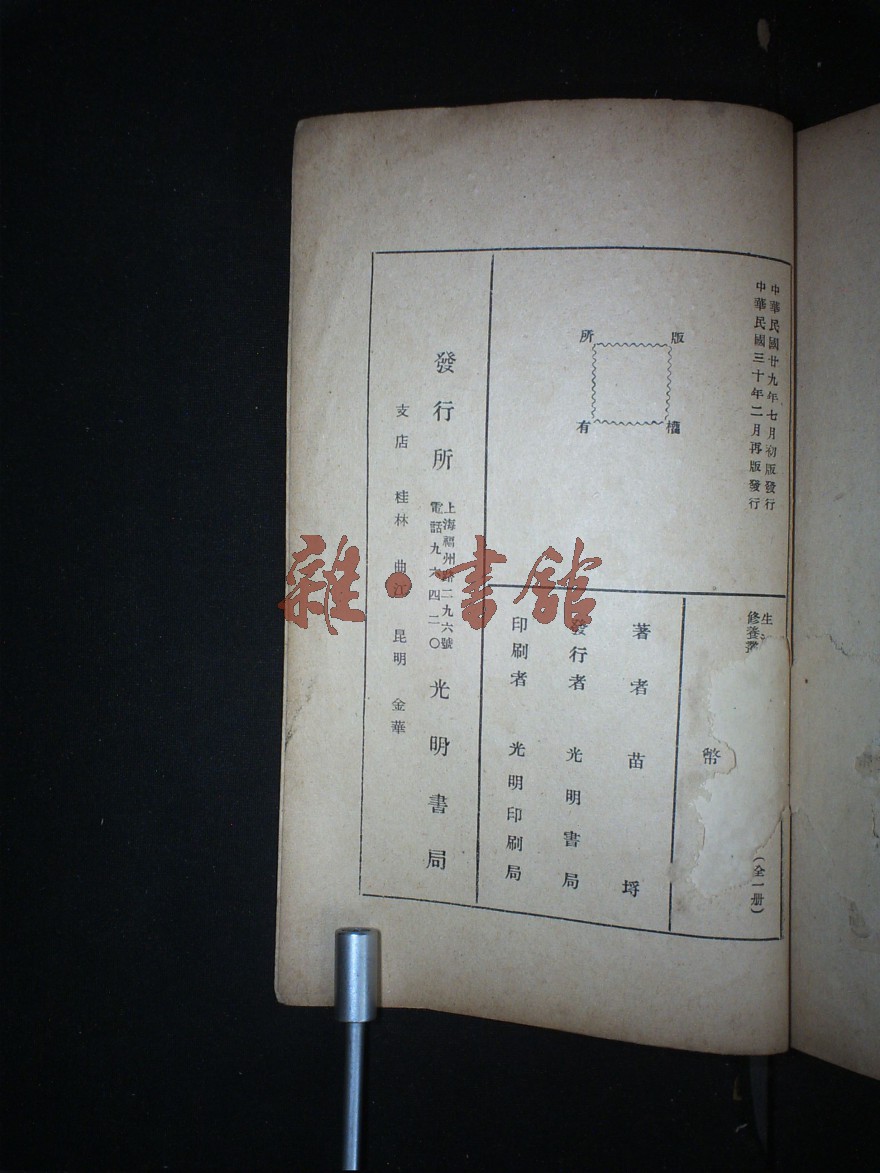 中華民國廿九年七月初版發行
中華民國三十年二月再版發行
版權所有
生
修養叢
(全一册)
幣
著者 苗埒
發行者 光明書局
印刷者 光明印刷局
發行所 上海福州路二九六號 電話九六四二〇 光明書局
支店 桂林 曲江 昆明 金華
雜·書館